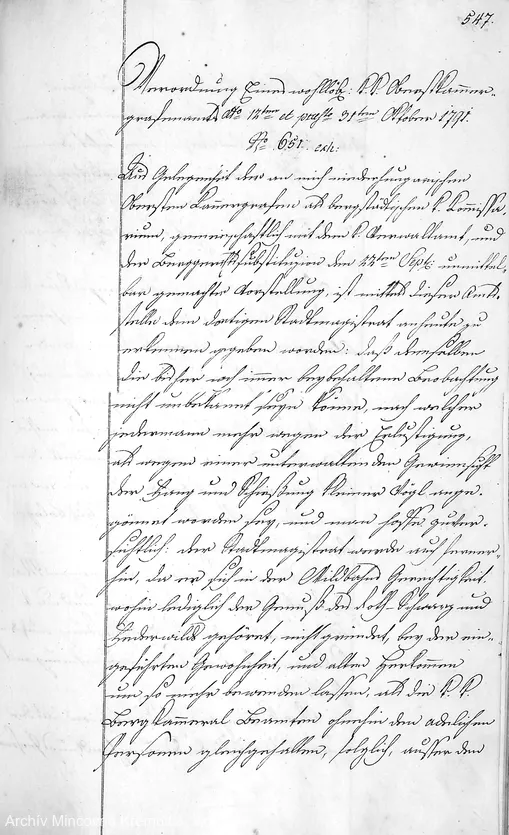 547.
Verordnung Eines wohllöbl: K. K. Oberstkammer-
grafenamts dto 12ten et praesto 31ten Oktober 1791.
No 651. exh:
Aus Gelegenheit der an mich niederhungarischen
Obersten Kammergrafen als bergstädtischen k. Kommissa-
rium, gemeinschaftlich mit dem k. Verwaltamt, und
der Berggerichtssubstitution den 22ten Sept: unmittel-
bar gemachte Vorstellung, ist mittels dieser Amts-
stelle dem dortigen Stadtmagistrat anheute zu
erkennen gegeben worden: daß demselben
die bisher noch immer beybehaltene Beobachtung
nicht unbekannt seyn könne, nach welcher
jedermann mehr wegen der Erlustigung,
als wegen einer unterwaltenden Gewinnsucht
der Fang und Schießung kleiner Vögl ange-
gönnet worden sey, und man hoffe zuver-
sichtlich: der Stadtmagistrat werde auch ferner-
hin, da er sich in der Wildbahns Gerechtigkeit
wohin lediglich der Genuß des Roth- Schwarz und
Federwilds gehöret, nicht gründet, bey der ein-
geführten Gewohnheit, und alten Herkommen
um so mehr bewenden lassen, als die k. k.
Bergkameral Beamten ohnehin den adelichen
Personen gleichgehalten, folglich, ausser den
Archiv Mincovne Kremnica